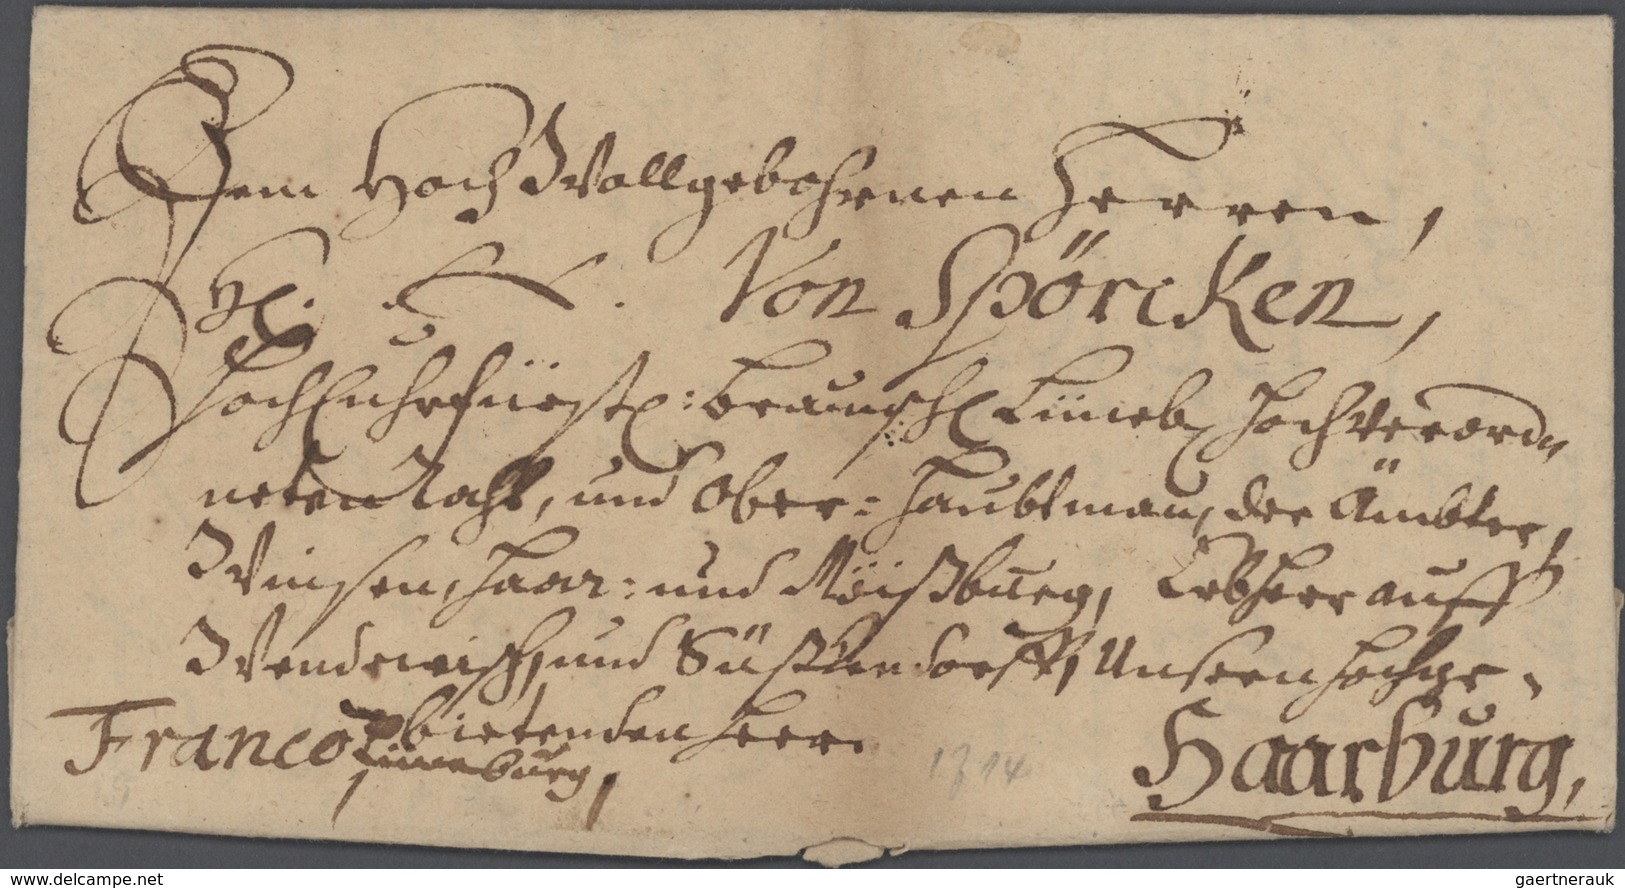 Dem Hoch Wollgebohrnen Herren,
H. Von Spörcken,
HochChurfürstl: braunschl Lüneb Hochverord„
neten Raht, und Ober= Haubtman, der Ämbter,
Winsen, Haar= und Moißburg, Erbherr auff
Wendewisch, und Süsttendorff, Unseren Hochge„
bietenden Herr.
Franco Lüneburg,
1714
Haarburg,
www.delcampe.net
gaertnerauk